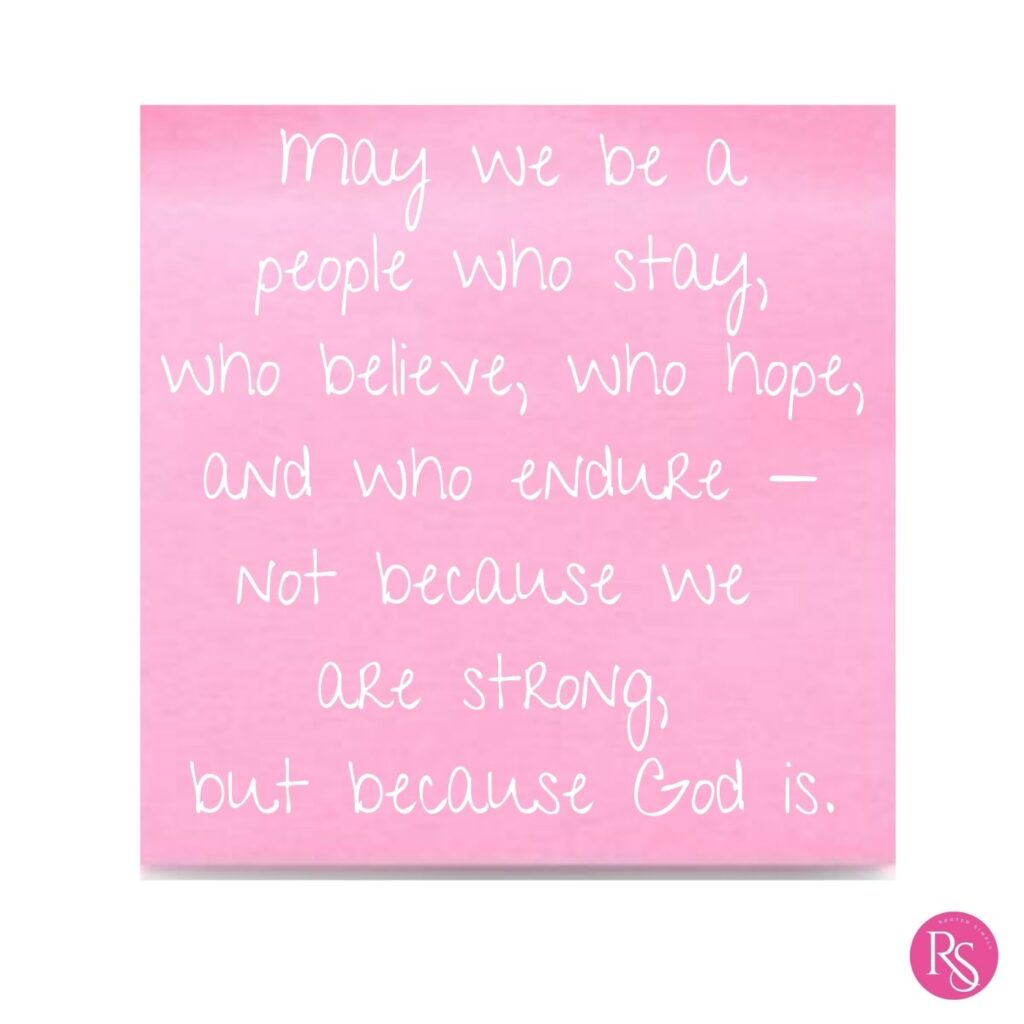 May we be a
people who stay,
who believe, who hope,
and who endure –
not because we
are strong,
but because God is.
RS